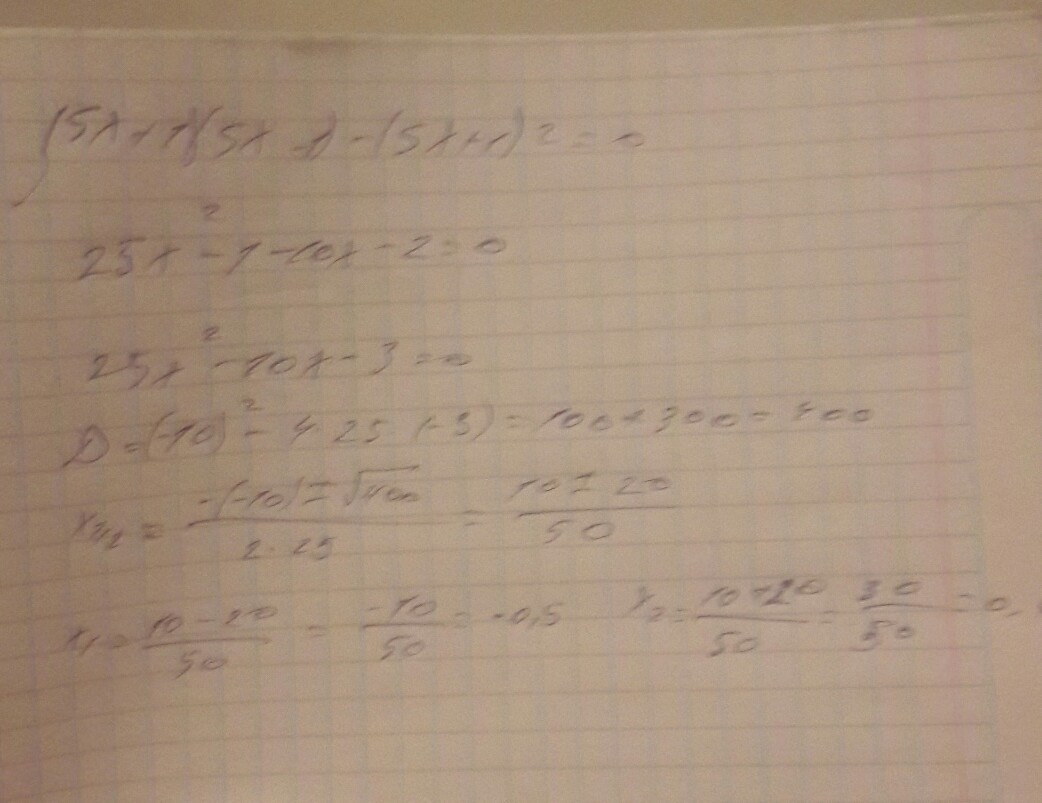 (5x+1)(5x-1)-(5x+1)2=0
25x²-1-10x-2=0
25x²-10x-3=0
D=(-10)²-4·25·(-3)=100+300=400
x₁,₂=\frac{-(-10)±√400}{2·25}=\frac{10±20}{50}
x₁=\frac{10-20}{50}=\frac{-10}{50}=-0,5 x₂=\frac{10+20}{50}=\frac{30}{50}=0,